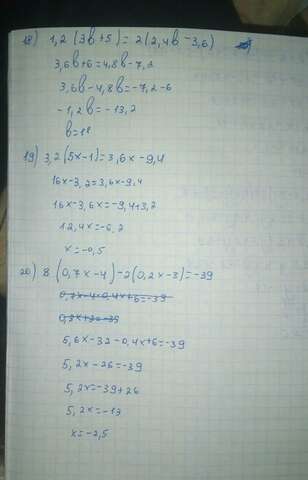 18) 1,2 (3b+5)=2(2,4b-3,6)
3,6b+6=4,8b-7,2
3,6b-4,8b=-7,2-6
-1,2b=-13,2
b=11
19) 3,2(5x-1)=3,6x-9,4
16x-3,2=3,6x-9,4
16x-3,6x=-9,4+3,2
12,4x=-6,2
x=-0,5
20) 8(0,7x-4)-2(0,2x-3)=-39
5,6x-32-0,4x+6=-39
5,2x-26=-39
5,2x=-39+26
5,2x=-13
x=-2,5